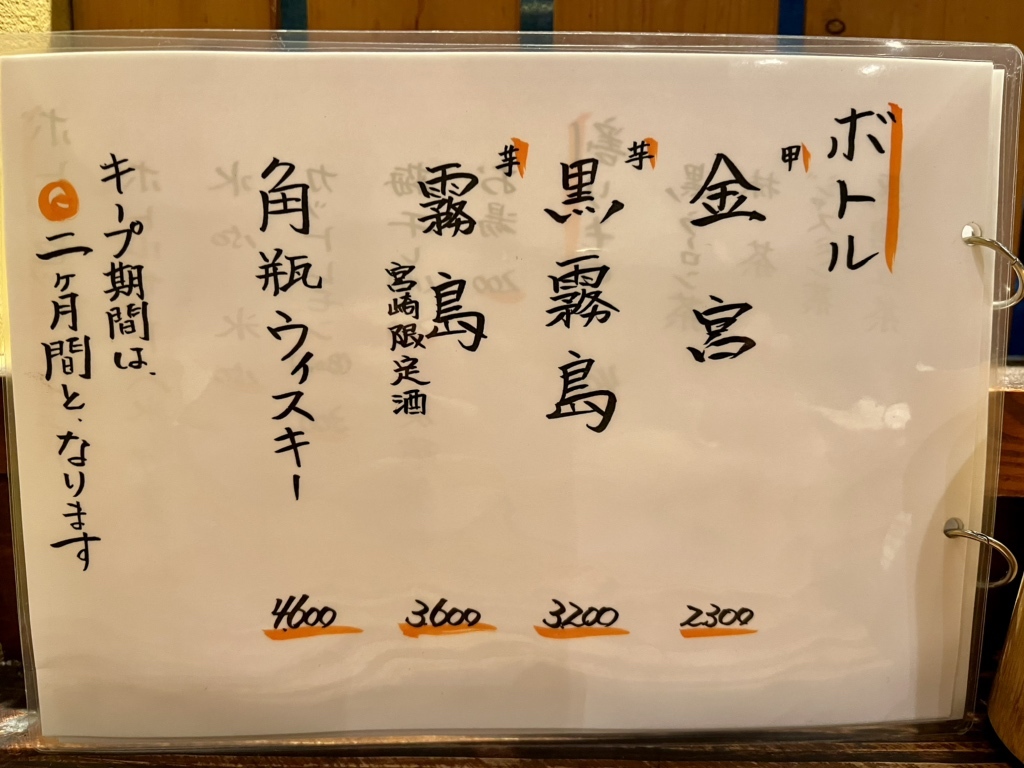 ボトル
甲
金宮
2300
芋
黒霧島
3200
芋
霧島
宮崎限定酒
3600
角瓶ウィスキー
4600
キープ期間は、
二ヶ月間と、なります